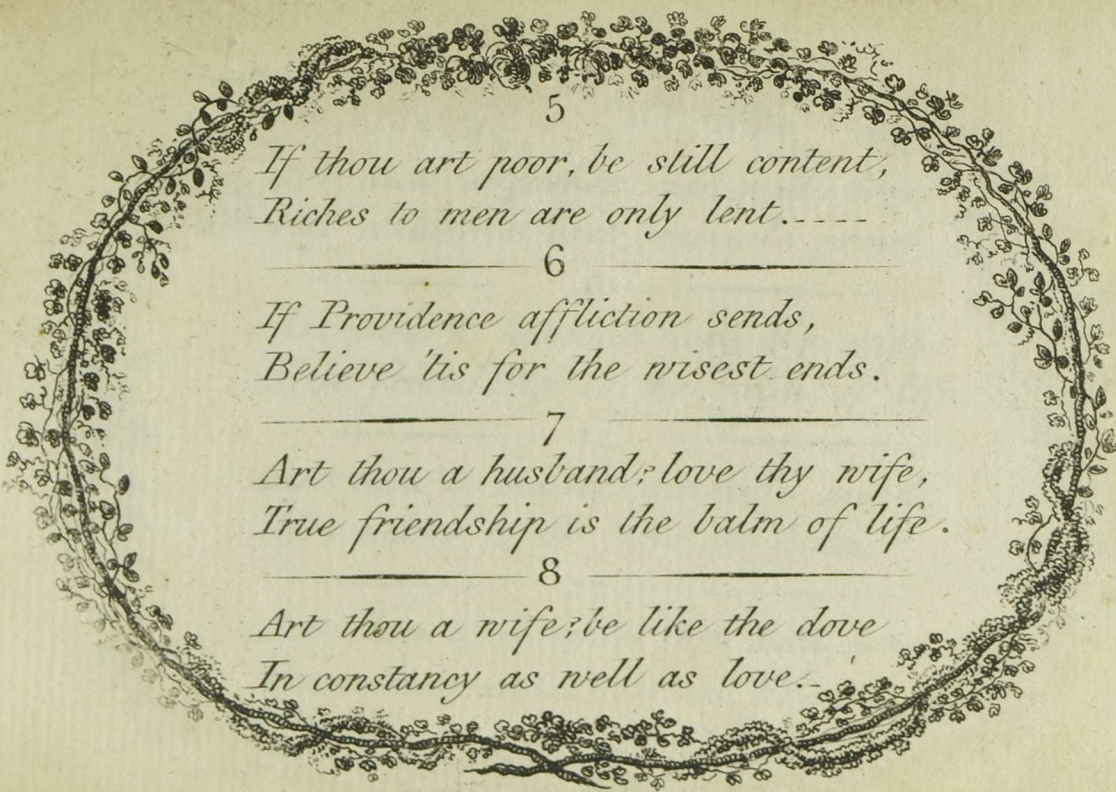 5
If thou art poor, be still content,
Riches to men are only lent.----
6
If Providence affliction sends,
Believe 'tis for the wisest ends.
7
Art thou a husband? love thy wife,
True friendship is the balm of life.
8
Art thou a wife? be like the dove
In constancy as well as love.-